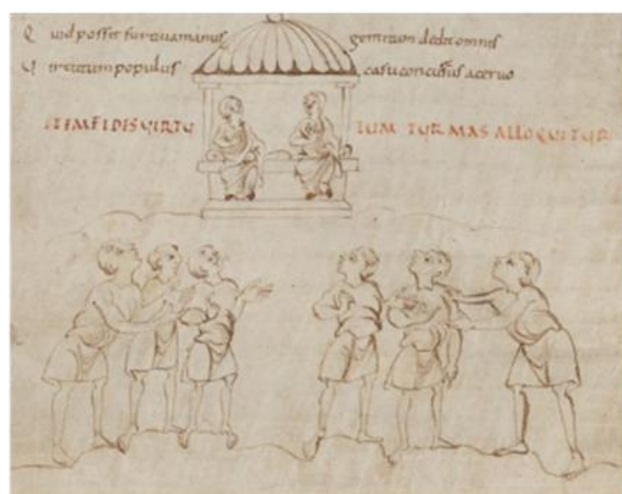 Quid posset furtiua manus gemitum dedit omnis
Uirtutum populus casu concussus aceruo
ITEM FIDIS UIRTU TUM TURMAS ALLOQUITUR